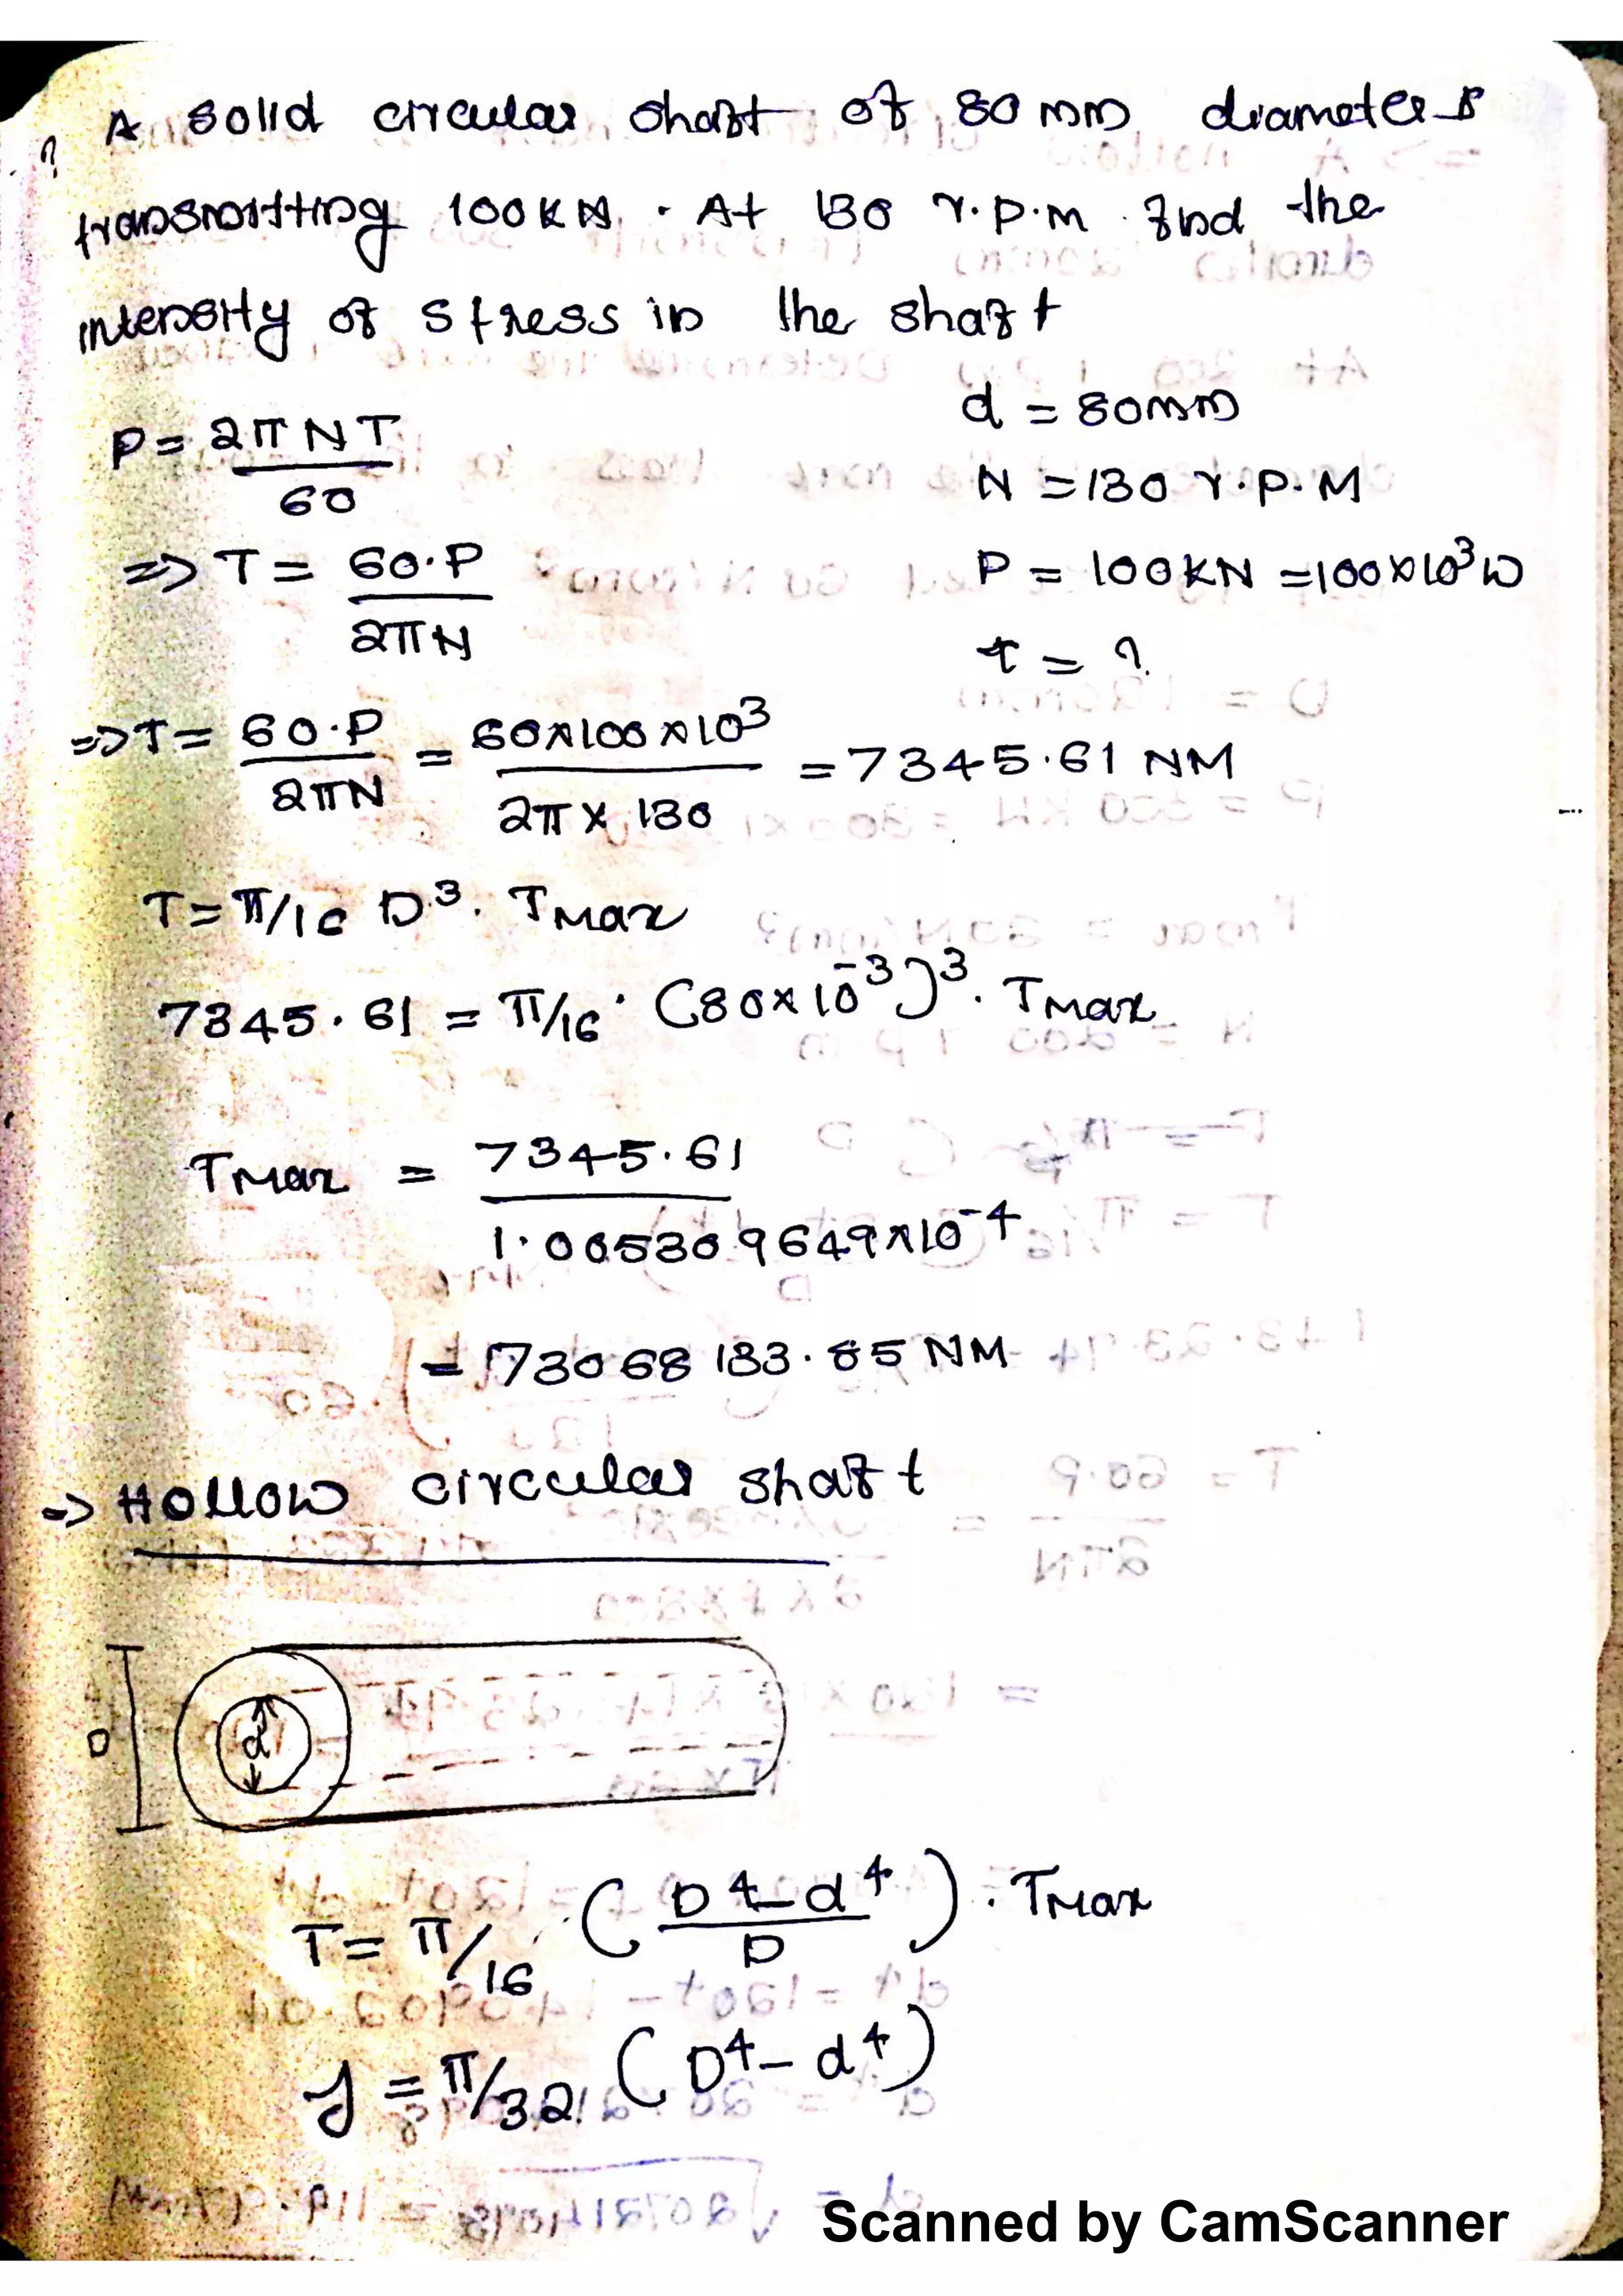 ? A solid circular shaft of 80 mm diameter is
transmitting 100KN. At 130 r.p.m find the
intensity of stress in the shaft
P = 2πNT/60
d = 80mm
N = 130 r.p.M
⇒ T = 60.P/2πN
P = 100KN = 100×10³W
τ = ?
⇒ T = 60.P/2πN = 60×100×10³/2π×130 = 7345.61 NM
T = π/16 D³. TMax
7345.61 = π/16 . (80×10⁻³)³. TMax
TMax = 7345.61/1.005309649×10⁻⁴
= 73068133.85 NM
⇒ Hollow circular shaft
D
d
T = π/16 . (D⁴-d⁴/D) . TMax
J = π/32 (D⁴-d⁴)
Scanned by CamScanner